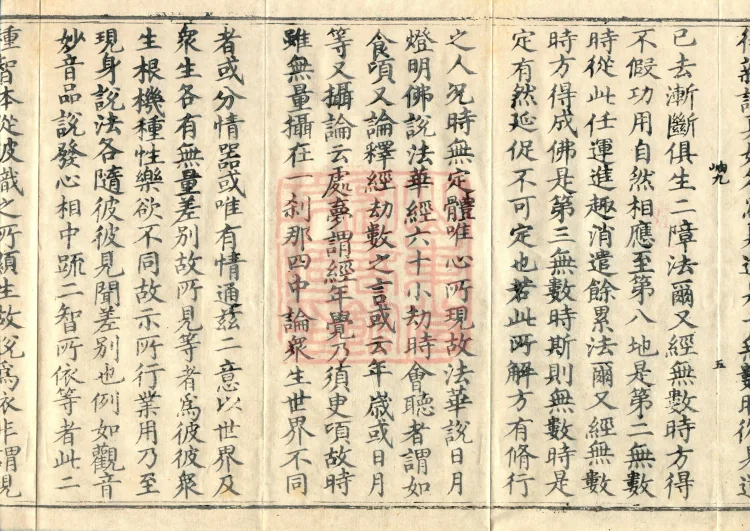 已去漸斷俱生二障法爾又經無數時方得
不假功用自然相應至第八地是第二無數
時從此任運進趣消遣餘累法爾又經無數
時方得成佛是第三無數時斯則無數時是
定有然延促不可定也若此所解方有脩行
之人況時無定體唯心所現故法華說日月
燈明佛說法華經六十小劫時會聽者謂如
食頃又論釋經劫數之言或云年歲或日月
等又攝論云處夢謂經年覺乃須臾項故時
雖無量攝在一剎那四中論衆生世界不同
者或分情器或唯有情通兹二意以世界及
衆生各有無量差別故所見等者為彼彼衆
生根機種性樂欲不同故示所行業用乃至
現身說法各隨彼彼見聞差別也例如觀音
妙音品說發心相中䟽二智所依等者此二
種智本從彼識之所顯生故說為依非謂現
岫九
五